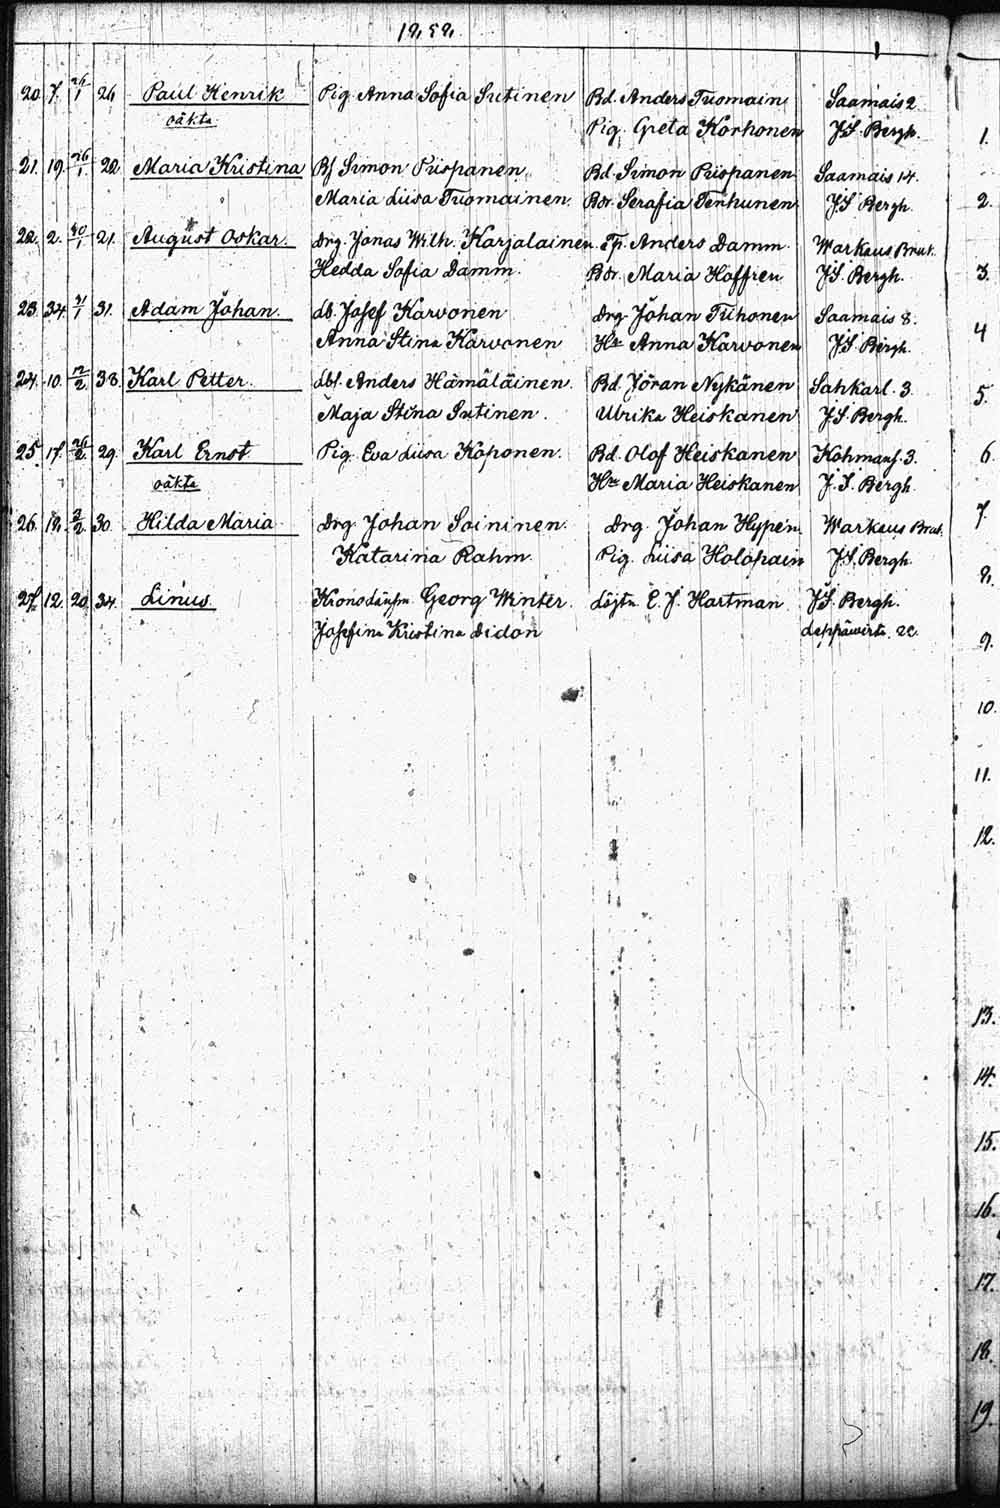 1852.
20. 7. 26/1 26 Paul Henrik Pig. Anna Sofia Sutinen Bd. Anders Tuomain Saamais 2
oäkta Pig. Greta Korhonen J.S. Bergh.
21. 19. 26/1. 22 Maria Kristina Bf Simon Piispanen Bd. Simon Piispanen Saamais 14.
Maria Liisa Tuomainen. Bdr. Serafia Tenhunen J.S Bergh.
22. 2. 30/1 21. August Oskar. Drg. Jonas Wilh. Karjalainen Tp. Anders Damm. Warkaus Bruk.
Hedda Sofia Damm. Bdr. Maria Hoffren J.S. Bergh.
23. 34. 31. Adam Johan. db. Josef Karvonen Drg. Johan Tiihonen Saamais 8.
Anna Stina Karvonen Hu Anna Karvonen J.S. Bergh.
24. 10. 12/2. 33. Karl Petter. Anders Hämäläinen. Bd. Jöran Nykänen Sahkarl. 3.
Maja Stina Sutinen. Ulrika Heiskanen J.S. Bergh.
25. 17. 26/2. 29. Karl Ernst Pig. Eva Liisa Koponen. Bd. Olof Heiskanen Kohmanj. 3.
oäkta Hu Maria Heiskanen J.S. Bergh
26. 18. 2/2. 30. Hilda Maria Drg. Johan Soininen. Drg. Johan Hypen. Warkaus Bruk.
Katarina Rahm. Pig. Liisa Holopain J.S. Bergh.
27. 12. 20. 34. Linus Kronolänsm Georg Winter. Löjtn. E. J. Hartman J.S. Bergh.
Josefina Kristina Didon Leppäwirta. 22.
1.
2.
3.
4
5.
6.
7.
8.
9.
10.
11.
12.
13.
14.
15.
16.
17.
18.
19.